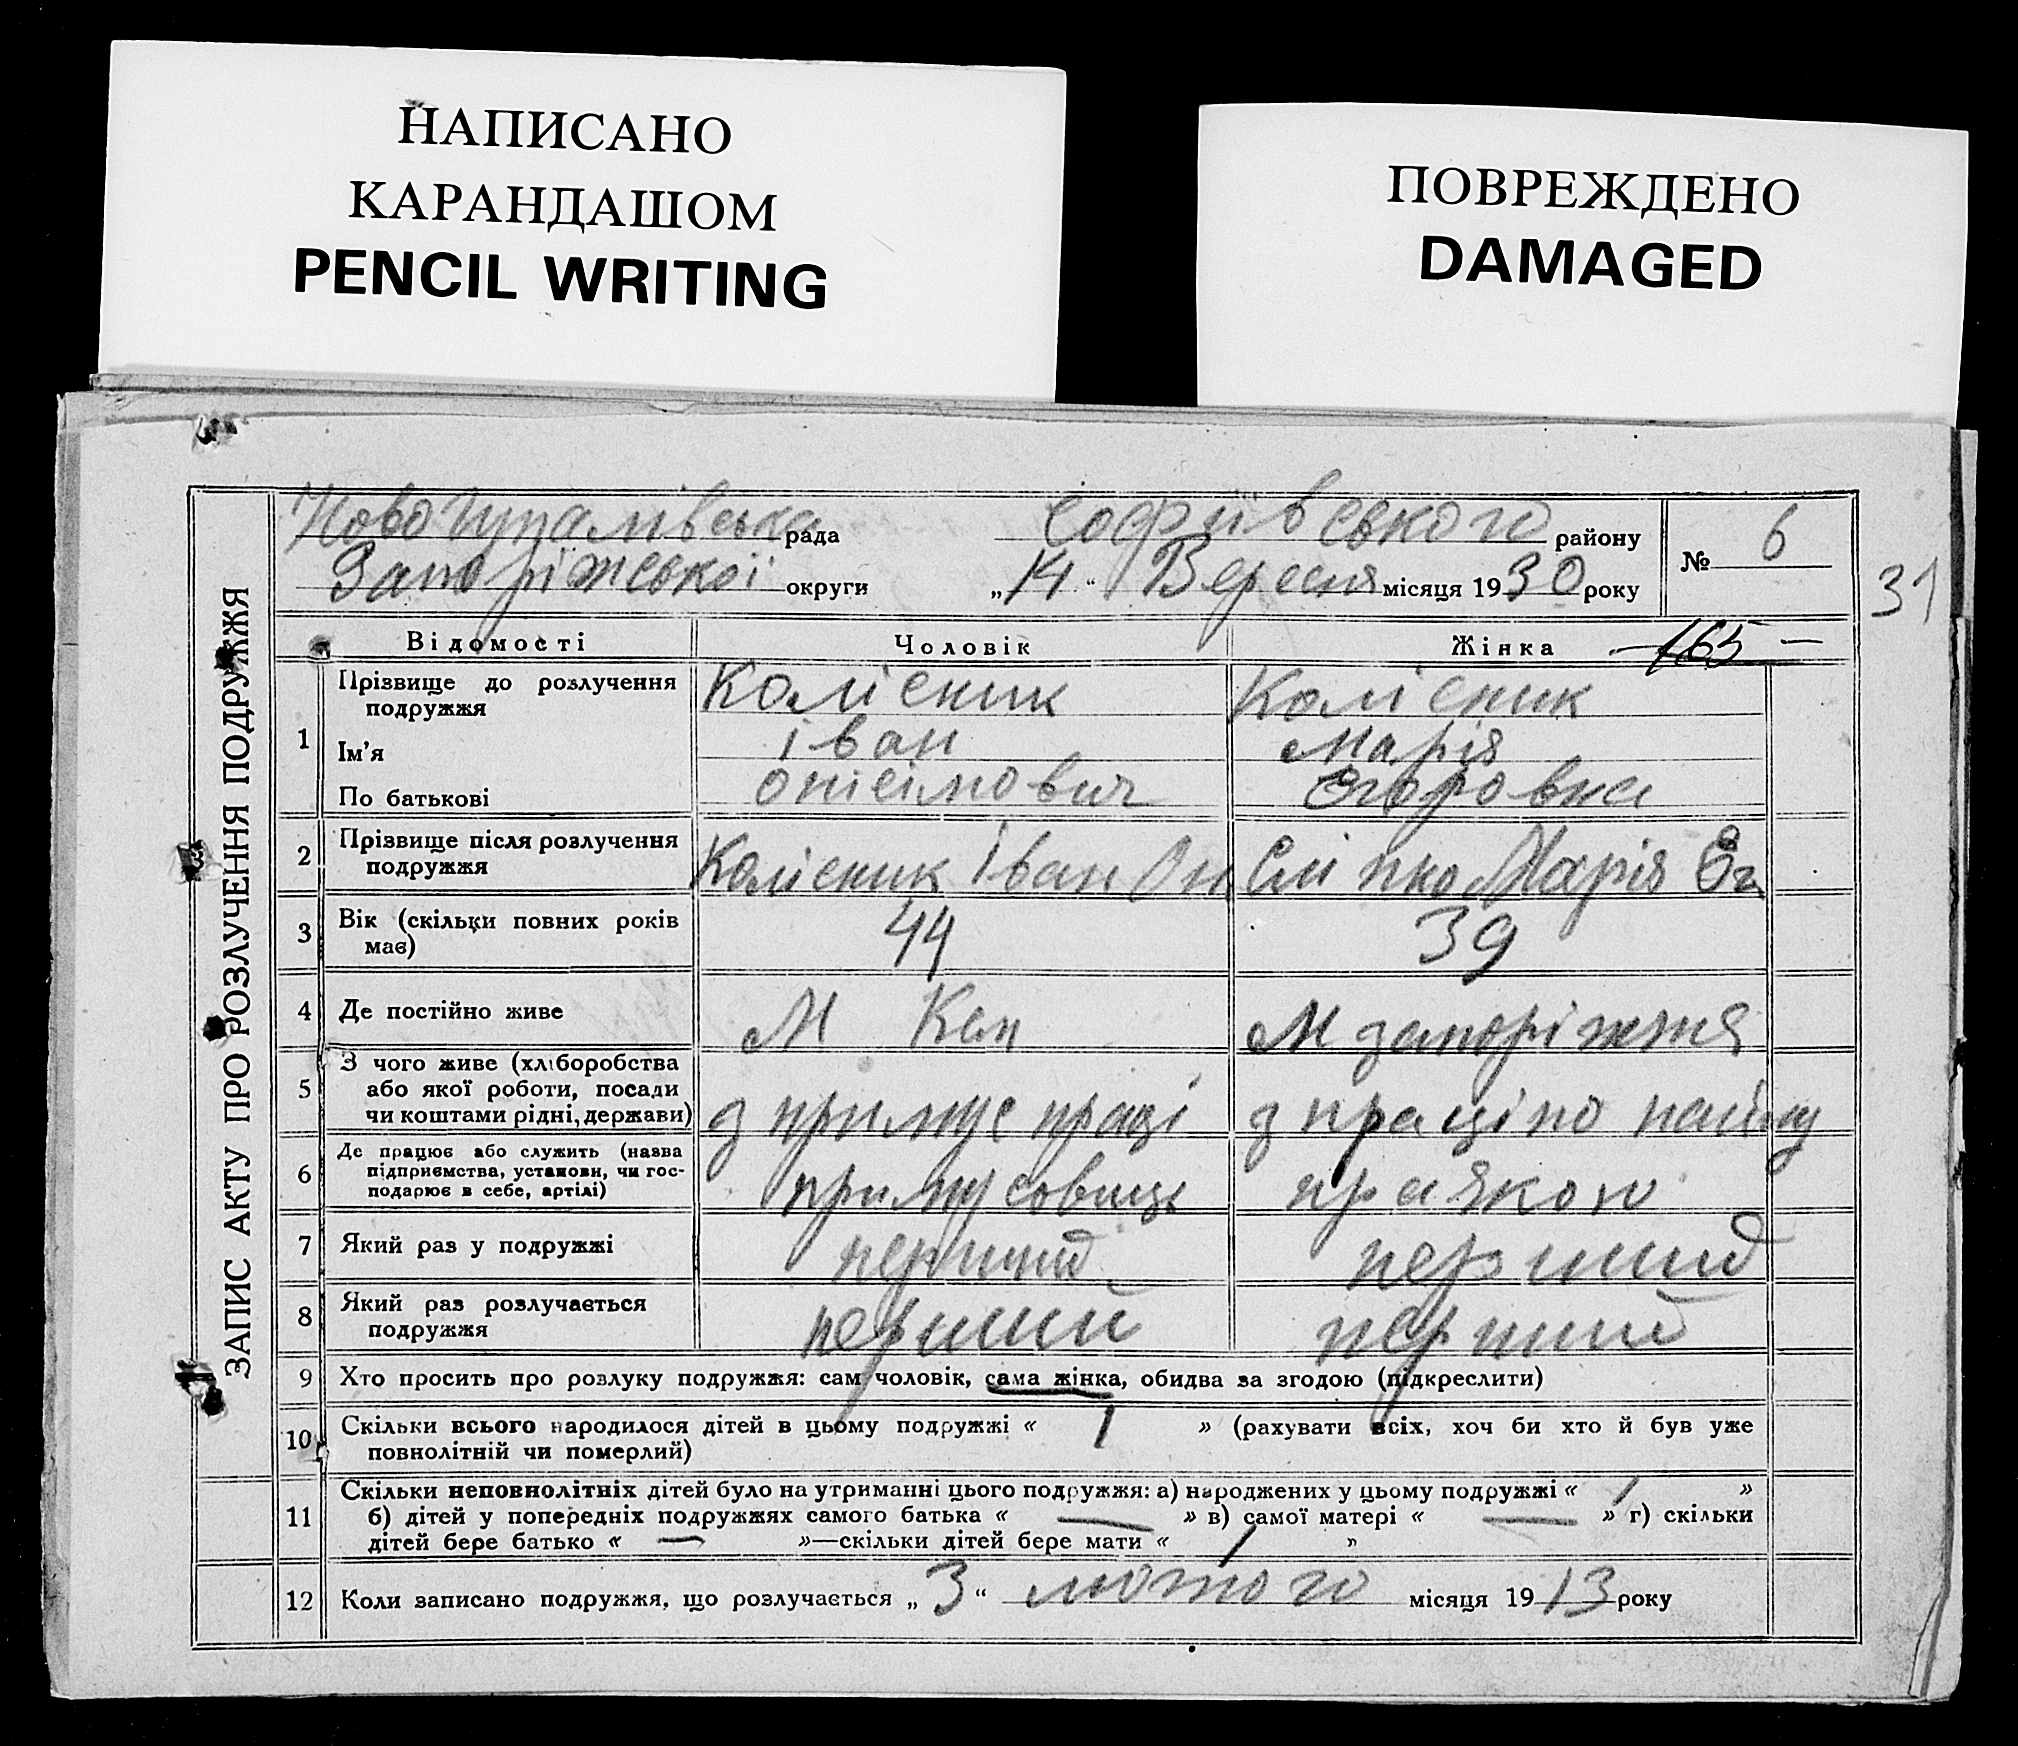 НАПИСАНО
КАРАНДАШОМ
PENCIL WRITING
ПОВРЕЖДЕНО
DAMAGED
ЗАПИС АКТУ ПРО РОЗЛУЧЕННЯ ПОДРУЖЖЯ
Новогупалівська рада Софіївського району № 6
Запоріжської округи „14“ Вересня місяця 1930 року
31
Відомості Чоловік Жінка —165—
1 Прізвище до розлучення подружжя Колісник Колісник
Ім’я іван Марія
По батькові онісімович Єгоровна
2 Прізвище після розлучення
подружжя Колісник Іван Он Слі пко Марія Єг
3 Вік (скільки повних років
має) 44 39
4 Де постійно живе М Кап М запоріжжя
5 З чого живе (хліборобства
або якої роботи, посади
чи коштами рідні, держави) з примус праці з праці по найму
6 Де працює або служить (назва
підприємства, установи, чи гос-
подарює в себе, артілі) праякою
7 Який раз у подружжі перший перший
8 Який раз розлучається
подружжя перший перший
9 Хто просить про розлуку подружжя: сам чоловік, сама жінка, обидва за згодою (підкреслити)
10 Скільки всього народилося дітей в цьому подружжі « 1 » (рахувати всіх, хоч би хто й був уже
повнолітній чи померлий)
11 Скільки неповнолітніх дітей було на утриманні цього подружжя: а) народжених у цьому подружжі « 1 »
б) дітей у попередніх подружжях самого батька « — » в) самої матері « — » г) скільки
дітей бере батько « — »—скільки дітей бере мати « 1 »
12 Коли записано подружжя, що розлучається „3“ лютого місяця 1913 року